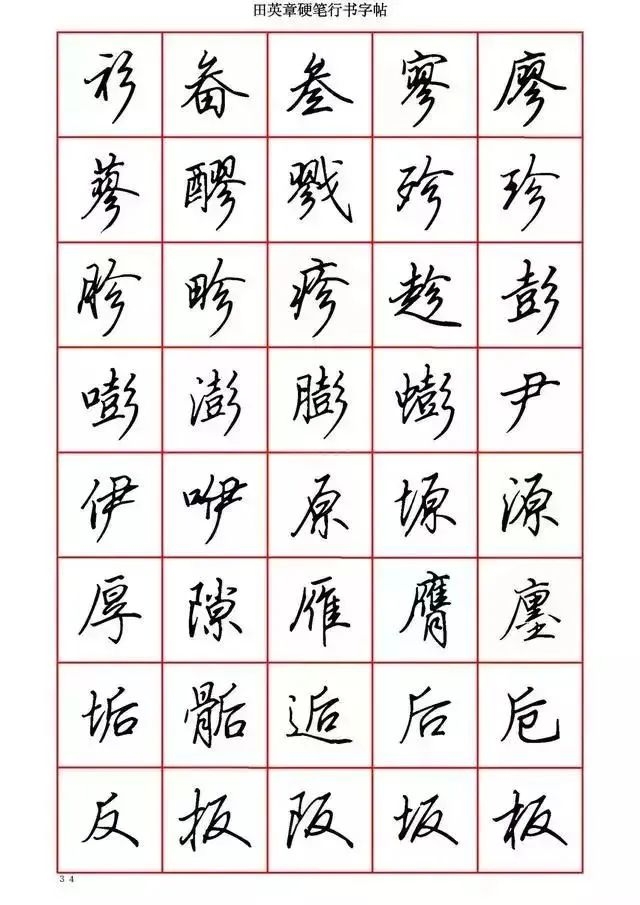 田英章硬笔行书字帖
衫 畚 叁 寥 廖
蓼 醪 戮 殄 珍
胗 畛 疹 趁 彭
嘭 澎 膨 蟛 尹
伊 咿 原 塬 源
厚 隙 雁 膺 廛
垢 骺 逅 后 卮
反 扳 阪 坂 板
34